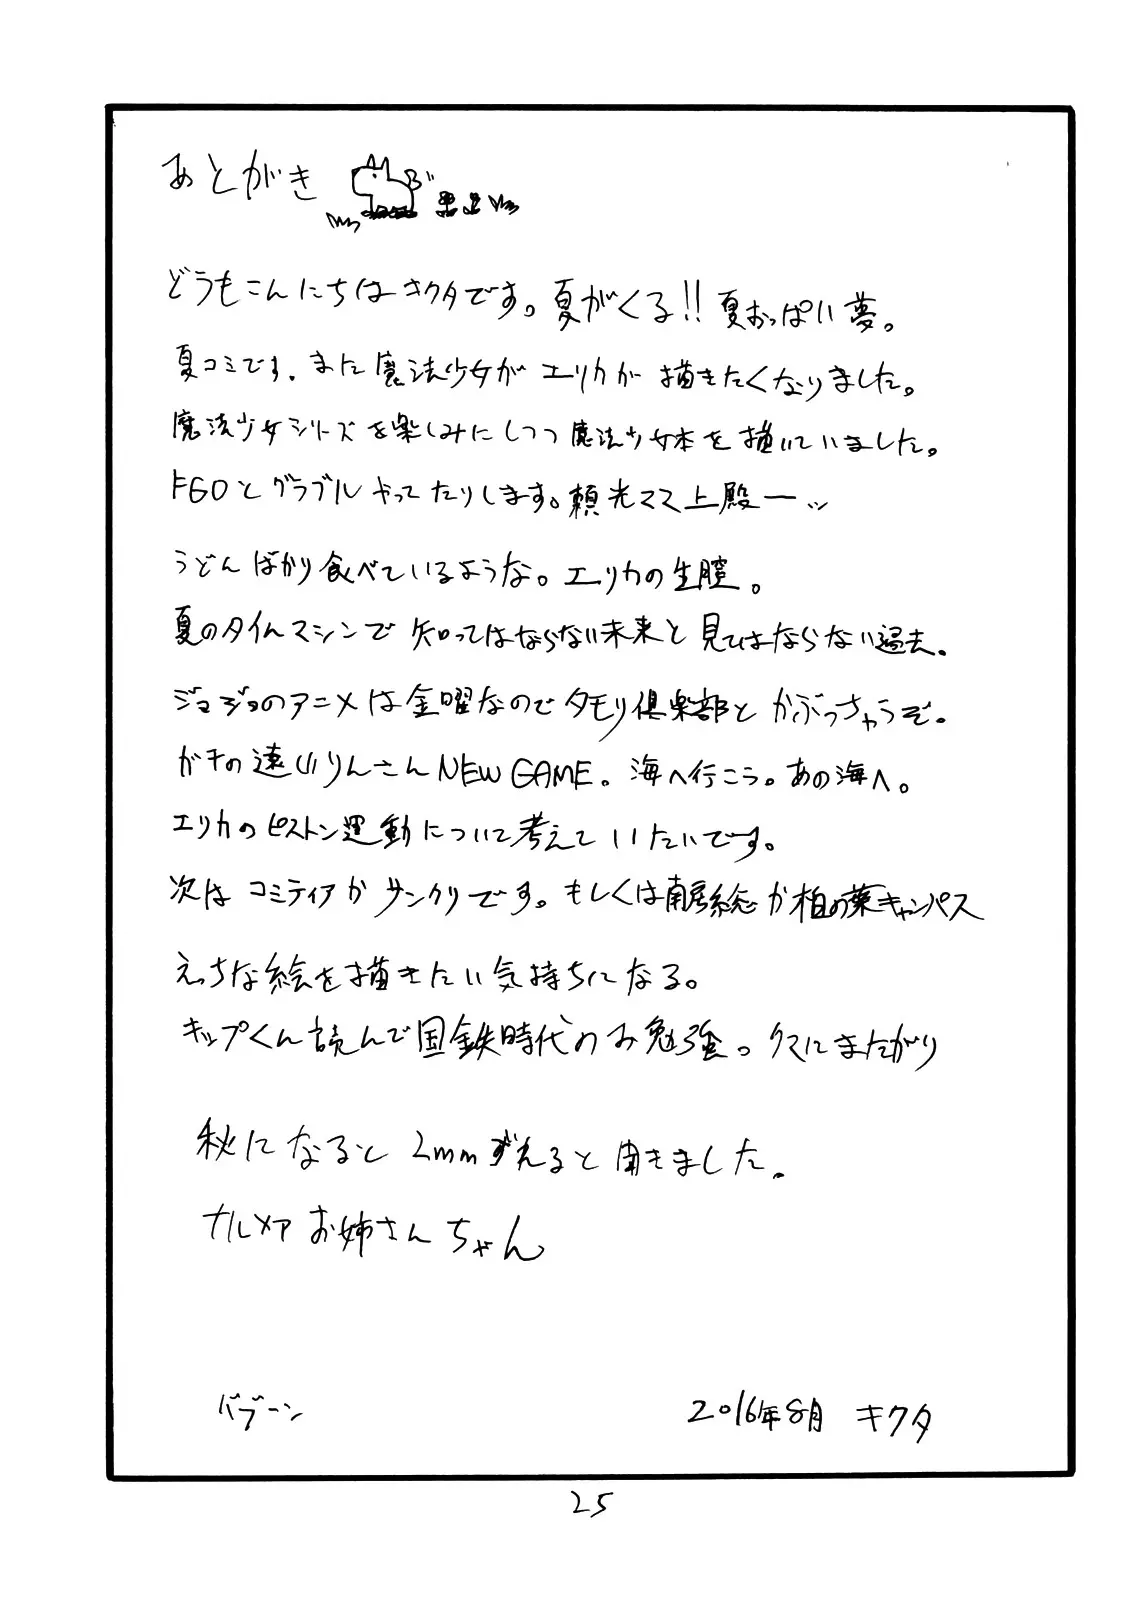 あとがき
どうもこんにちはキクタです。夏がくる!! 夏おっぱい夢。
夏コミです。また魔法少女がエリカが描きたくなりました。
魔法少女シリーズを楽しみにしつつ魔法少女本を描いていました。
FGOとグラブルやってたりします。頼光ママ上殿ーッ
うどんばかり食べているような。エリカの生膣。
夏のタイムマシンで知ってはならない未来と見てはならない過去。
ジョジョのアニメは金曜なのでタモリ倶楽部とかぶっちゃうぞ。
ガチの遠山りんさんNEW GAME。海へ行こう。あの海へ。
エリカのピストン運動について考えていたいです。
次はコミティアかサンクリです。もしくは南房総か柏の葉キャンパス
えっちな絵を描きたい気持ちになる。
キップくん読んで国鉄時代のお勉強。クマにまたがり
秋になると2mmずれると聞きました。
ナルメアお姉さんちゃん
バブーン
2016年8月 キクタ
25